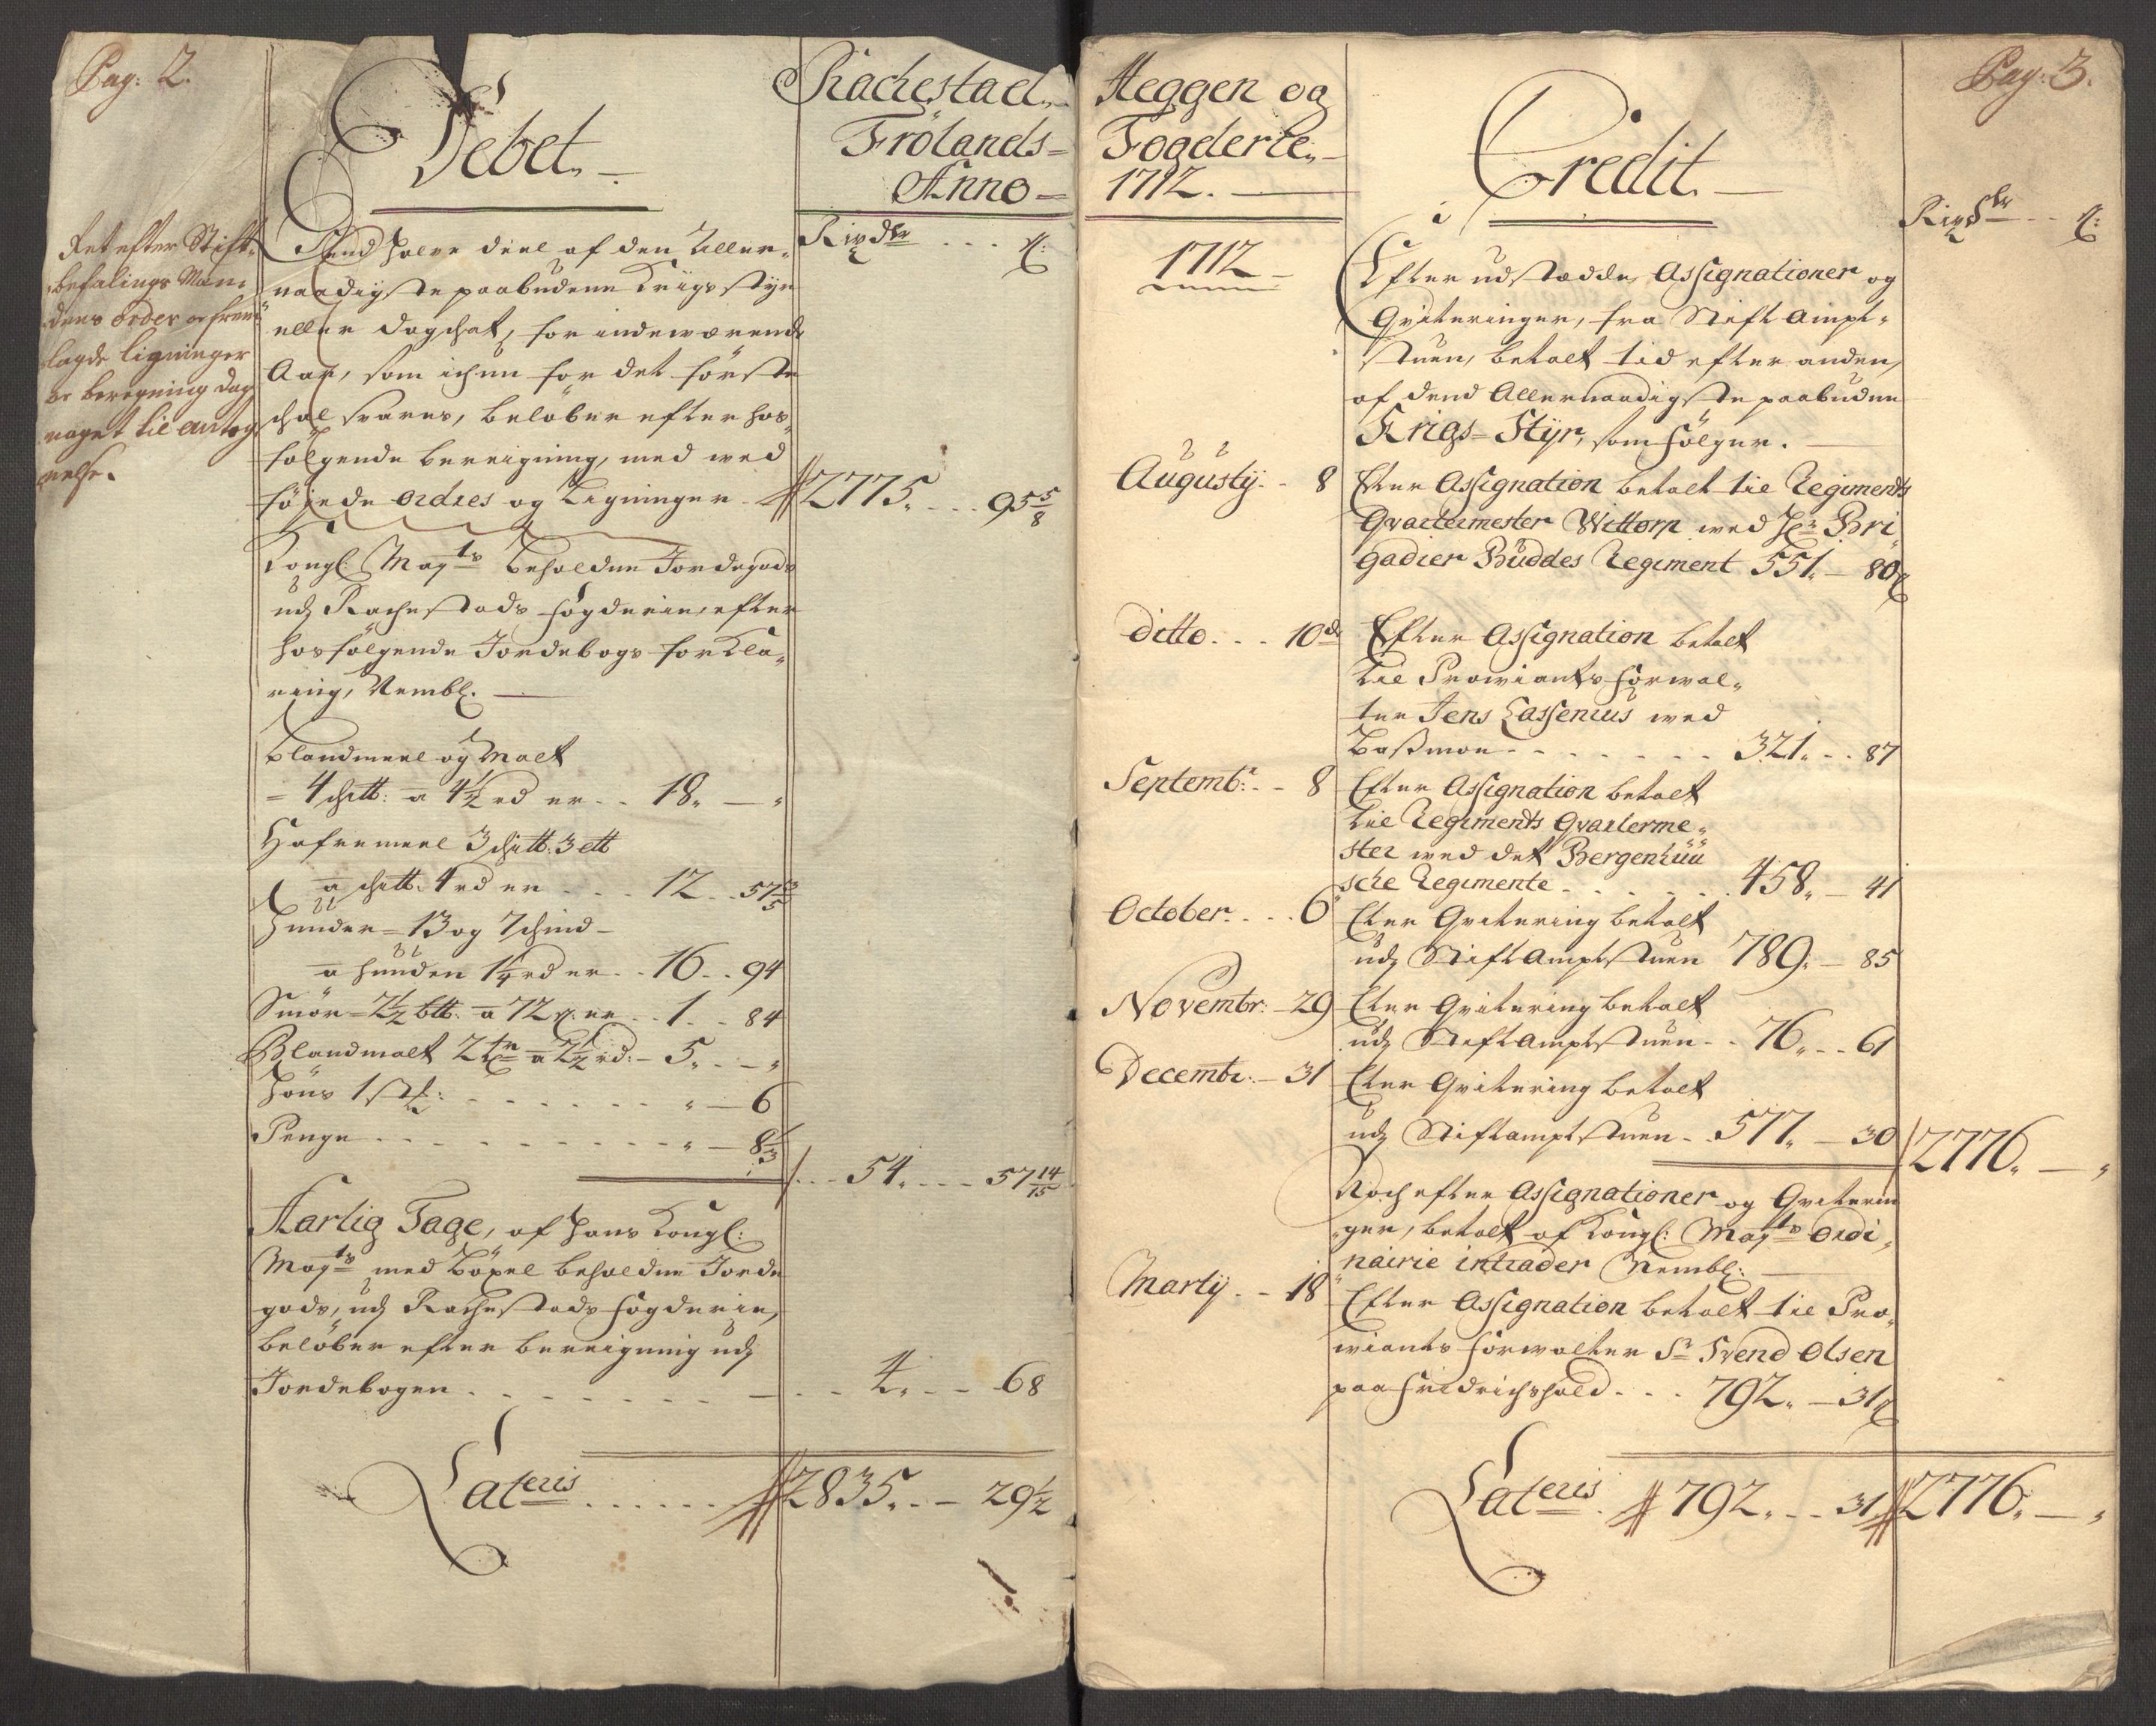 Pag: 2.
Debet.
Rachestad,
Frölands=
Anno=
Rixdlr ... ß:
Ret efter Stift
befalings Man
dens order og frem
lagde ligninger
og beregning dog
noget til anteg
nelse.
Dend halve deel af den Aller-
naadigste paabudene Krigs styr
eller dagskat, for indeværende
Aar, som ichun for det første
schal svares, beløber efter hos-
følgende bereigning, med wed
föyede ordres og Ligninger 2775. ... 95 5/8
Kongl: Mayts beholdne Jordegods
udj Rachestads fogderie, efter
hosfølgende Jordebogs forkla-
ring, Nembl.
Blandmeel og Malt
= 4 schtt: a 4 1/2 rd er .. 18. — "
Hafremeel 3 schtt: 3 ltt
a schtt: 4 rd er ... 12 .. 57 3/5
Huuder = 13 og 7 schind -
a huuden 1 1/4 rd er .. 16 .. 94
Smör = 2 1/2 btt: a 72 ß er .. 1 .. 84
Blandmalt 2 tr a 2 1/2 rd: - 5. . — "
Höns 1 st: - - - - - - " — 6
Penge - - - - - - - - - " — 8 1/3
... 54. ... 57 14/15
Aarlig Tage, af Hans Kongl:
Mayts med Böxel beholdne Jorde
gods, udj Rachestads fogderie,
beløber efter bereigning udj
Jordebogen - - - - - - - - - 4. - - 68
Lateris ...... 2835. - - 29 1/2
Pag: 3.
Heggen og
Fogderie,
1712.
Credit.
Rixdlr - - ß:
1712
Efter udstædde Assignationer og
Qviteringer, fra Stift Ampt-
stuen, betalt tid efter anden,
af dend Allernaadigste paabudene
Krigs=Styr, som følger.
Augustij - - 8 Efter Assignation betalt til Regiments
Qvartermester Wittorp wed Hr: Bri
gadier Buddes Regiment 551. — 80 ß
Ditto ... 10de Efter Assignation betalt
til Proviants forwal-
ter Jens Lassenius wed
Basmoe - - - - - - - 321. - - 87
Septembr: - - 8 Efter Assignation betalt
til Regiments Qvarterme-
ster wed det Bergenhuu
sche Regimente - - - - - - 458. — 41
October ... 6 Efter Qvitering betalt
udj Stift Amptstuen 789. — 85
Novembr: - 29 Efter Qvitering betalt
udj Stift Amptstuen - - 76. - - 61
Decembr: - 31 Efter Qvitering betalt
udj Stiftamptstuen - 577. — 30 2776. — "
Noch efter Assignationer og Qviterin
ger, betalt af Kongl: Mayts Ordi-
nairie intrader Nembl:
Martij - - 18 Efter Assignation betalt til Pro-
viants forwalter Sr Svend Olsen
paa Fridrichshald - - - 792. — 31 ß
Lateris 792. - - 31 2776. — "